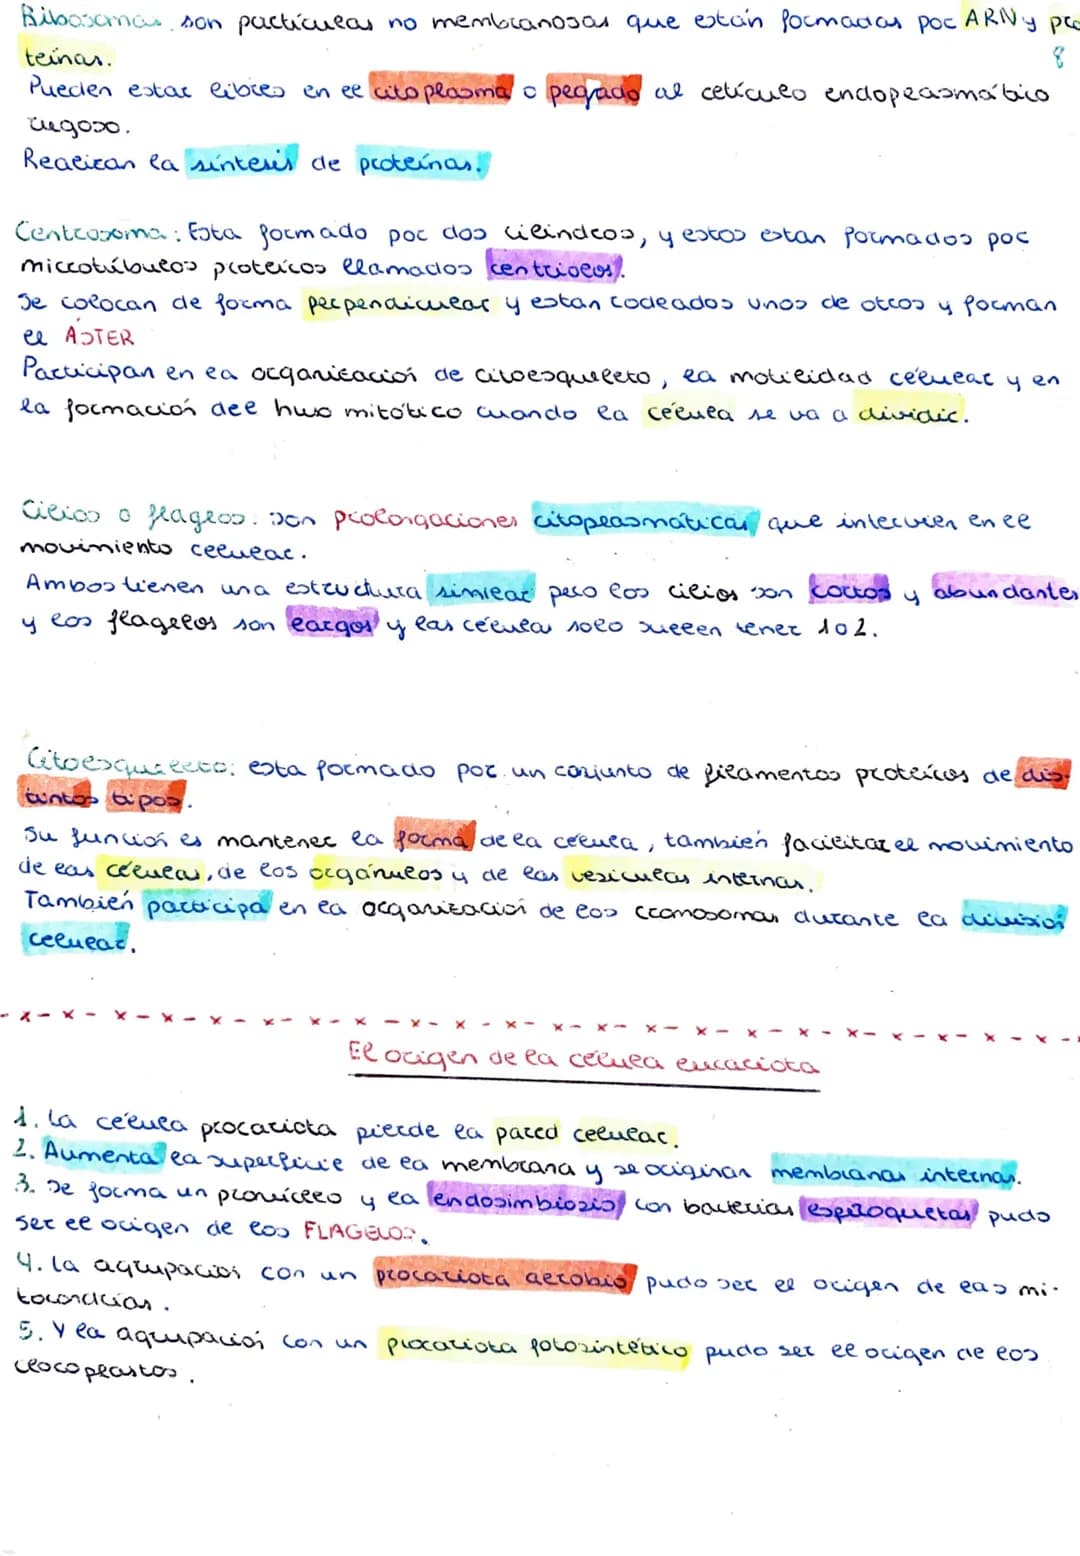 Ribosomas: son partículas no membranosas que están formadas por ARN y pro
teínas.
8
Pueden estar libres en el citoplasma o pegado al retículo endoplasmático
rugoso.
Realizan la síntesis de proteínas.
Centrosoma: Esta formado por dos cilindros, y estos estan formados por
microtúbulos proteícos llamados centriolos.
Se colocan de forma perpendicular y estan rodeados unos de otros y forman
el ÁSTER
Participan en la organización de citoesqueleto, la motilidad celular y en
la formación del huso mitótico cuando la célula se va a dividir.
Cilios o flagelos: Son prolongaciones citoplasmáticas que intervien en el
movimiento celular.
Ambos tienen una estructura similar pero los cilios son cortos y abundantes
y los flagelos son largos y las células solo suelen tener 1 o 2.
Citoesqueleto: esta formado por un conjunto de filamentos proteícos de dis-
tintos tipos.
Su función es mantener la forma de la célula, también facilitar el movimiento
de las células, de los orgánulos y de las vesiculas internas.
También participa en la organización de los cromosomas durante la división
celular.
El origen de la célula eucariota
1. La célula procariota pierde la pared celular.
2. Aumenta la superficie de la membrana y se originan membranas internas.
3. Se forma un pronúcleo y la endosimbiosis con bacterias espiroquetas pudo
ser el origen de los FLAGELOS.
4. La agrupación con un procariota aerobio pudo ser el origen de las mi-
tocondrias.
5. Y la agrupación con un procariota fotosintético pudo ser el origen de los
cloroplastos.